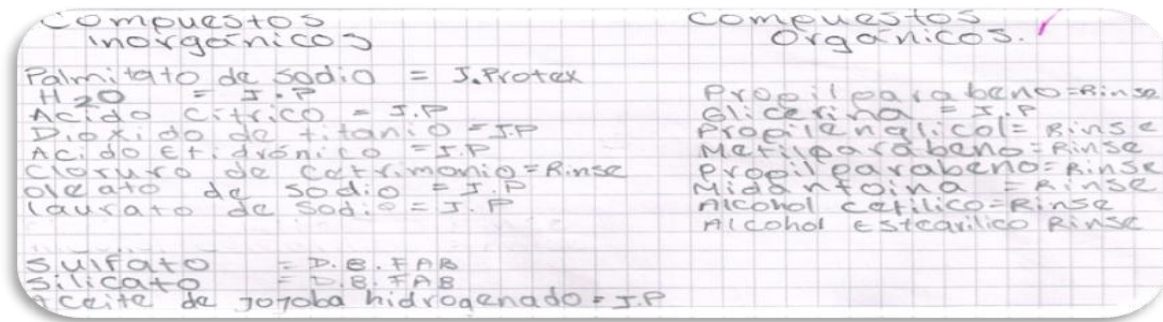 Compuestos
inorgánicos
Palmitato de sodio = J.Protex
H2O = J.P
Acido Cítrico = J.P
Dioxido de titanio = J.P
Acido Etidrónico = J.P
Cloruro de Cetrimonio = Rinse
Oleato de Sodio = J.P
laurato de Sodio = J.P
Sulfato = D.B.FAB
Silicato = D.B.FAB
Aceite de Jojoba hidrogenado = J.P
Compuestos
Orgánicos.
Propilparabeno = Rinse
Glicerina = J.P
Propilenglicol = Rinse
Metilparabeno = Rinse
Propilparabeno = Rinse
Midantoina = Rinse
Alcohol Cetilico = Rinse
Alcohol Estearilico Rinse